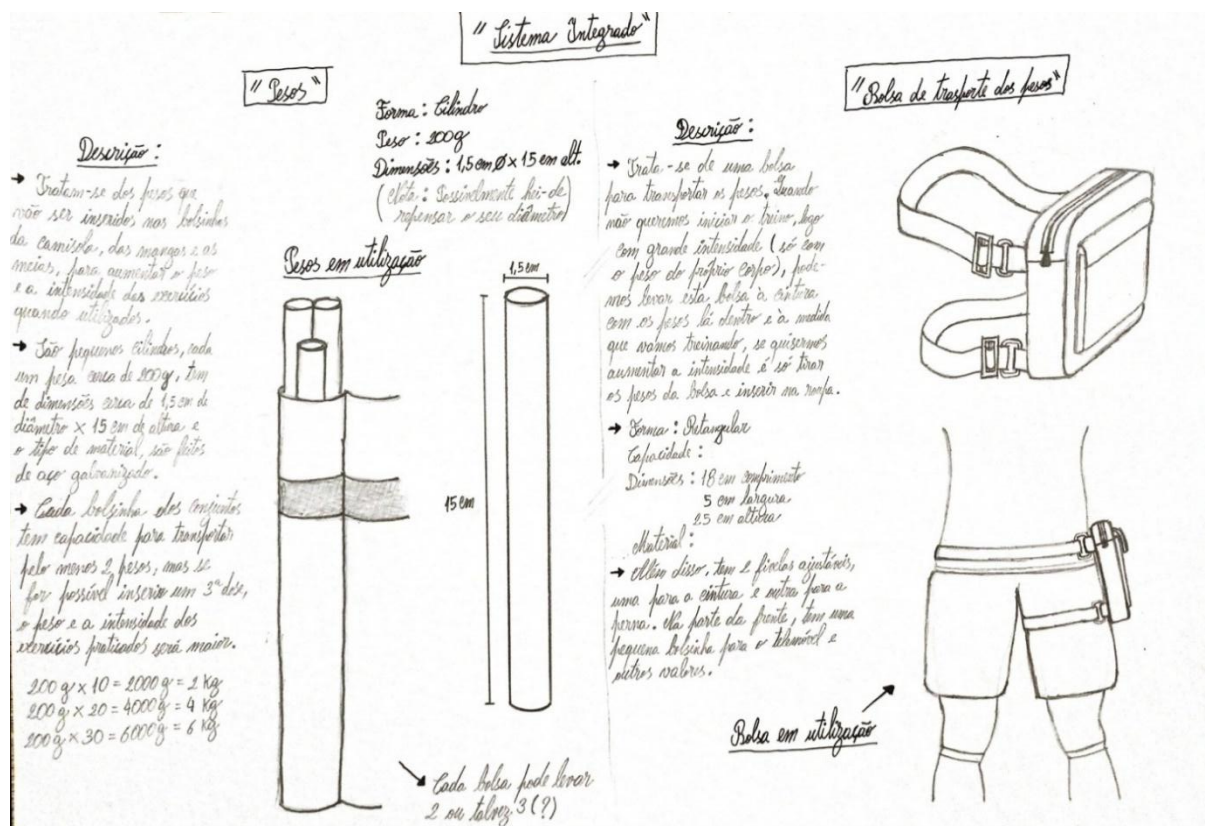 " Sistema Integrado "
" Pesos "
Forma : Cilindro
Peso : 200g
Dimensões : 1,5 cm Ø x 15 cm alt.
( Nota : Possivelmente hei-de
repensar o seu diâmetro)
Descrição :
→ Tratam-se dos pesos que
vão ser inseridos nas bolsinhas
da camisola, das mangas e as
meias, para aumentar o peso
e a intensidade dos exercícios
quando utilizados.
→ São pequenos cilindros, cada
um pesa cerca de 200g, tem
de dimensões cerca de 1,5 cm de
diâmetro x 15 cm de altura e
o tipo de material, são feitos
de aço galvanizado.
→ Cada bolsinha dos conjuntos
tem capacidade para transportar
pelo menos 2 pesos, mas se
for possível inserir um 3º
o peso e a intensidade dos
exercícios praticados será maior.
200 g x 10 = 2000 g = 2 kg
200 g x 20 = 4000 g = 4 kg
200 g x 30 = 6000 g = 6 kg
Pesos em utilização
1,5 cm
15 cm
→ Cada bolsa pode levar
2 ou talvez 3 (?)
" Bolsa de trasporte dos pesos "
Descrição :
→ Trata-se de uma bolsa
para transportar os pesos. Quando
não queremos iniciar o treino, logo
com grande intensidade ( só com
o peso do próprio corpo), pode-
mos levar esta bolsa à cintura
com os pesos lá dentro e à medida
que vamos treinando, se quisermos
aumentar a intensidade é só tirar
os pesos da bolsa e inserir na roupa.
→ Forma : Retangular
Capacidade :
Dimensões : 18 cm comprimento
5 cm largura
25 cm altura
Material :
→ Além disso, tem 2 fivelas ajustáveis,
uma para a cintura e outra para a
perna. Na parte da frente, tem uma
pequena bolsinha para o telemóvel e
outros valores.
Bolsa em utilização